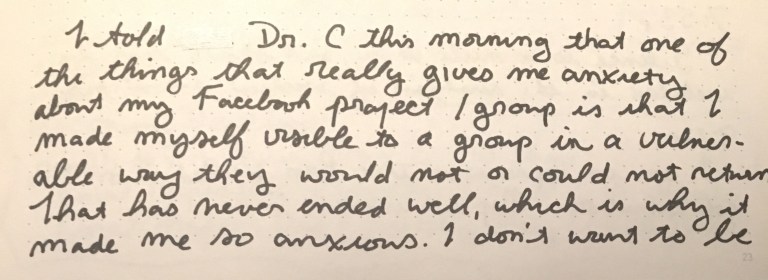 I told Dr. C this morning that one of
the things that really gives me anxiety
about my Facebook project / group is that I
made myself visible to a group in a vulner-
able way they would not or could not return
That has never ended well, which is why it
made me so anxious. I don't want to be
23